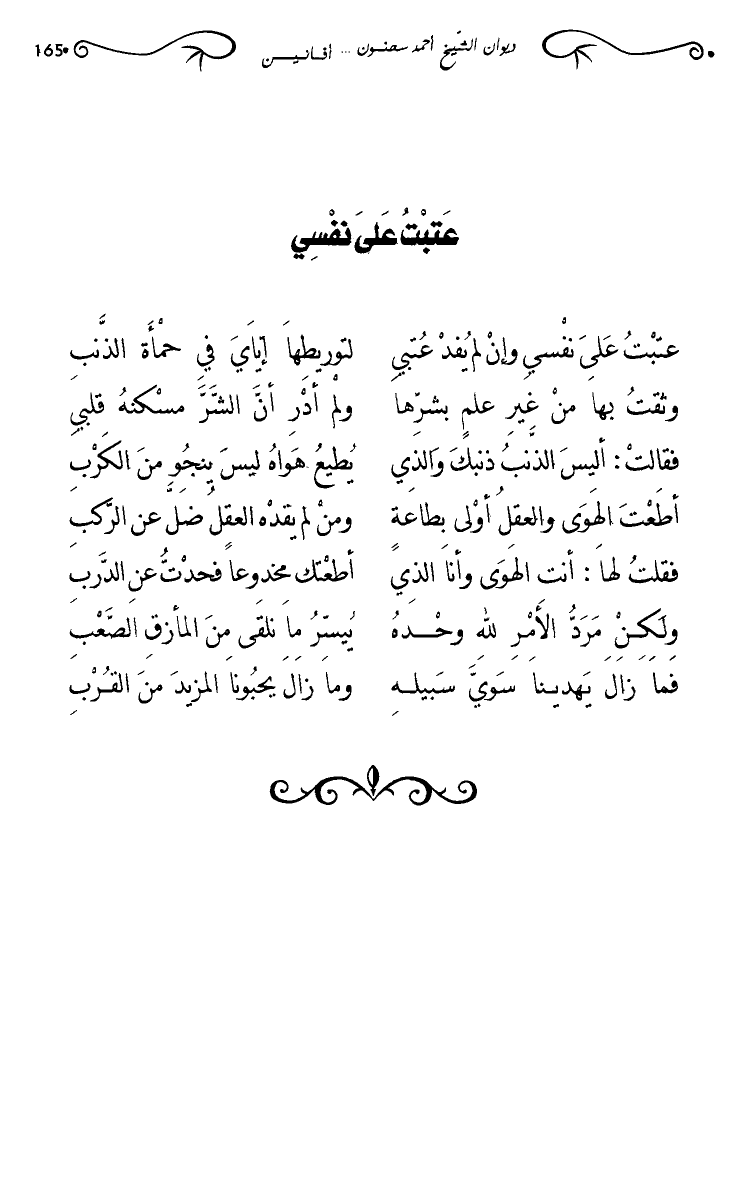 ديوان الشّيخ أحمد سحنون ... أفانين 165
عَتَبْتُ عَلَى نَفْسِي
عتبْتُ عَلَى نَفْسي وإنْ لم يُفدْ عُتبي لتوريطِهَا إيّايَ في حمْأَة الذَّنبِ
وثقتُ بها منْ غَيرِ علمٍ بشرّها ولمْ أدْرِ أنَّ الشَّرَّ مسْكنهُ قلبي
فقالتْ : أليسَ الذنبُ ذنبكَ وَالذي يُطيعُ هَواهُ ليسَ ينجُو منَ الكَرْبِ
أطَعْتَ الهَوَى والعقلُ أوْلى بِطاعةٍ ومنْ لم يقدْه العقلُ ضلَّ عن الرَّكبِ
فقلتُ لهَا : أنتِ الهَوَى وأنَا الذي أطعْتك مخدوعاً فحدْتُ عنِ الدَّربِ
ولَكِنْ مَرَدُّ الأمْرِ للهِ وحْدهُ يُيسّرُ مَا نلقَى مِنَ المأزقِ الصَّعْبِ
فمَا زال يَهدِينا سَويَّ سَبيلهِ وما زال يحبُونا المزيدَ منَ القُرْبِ